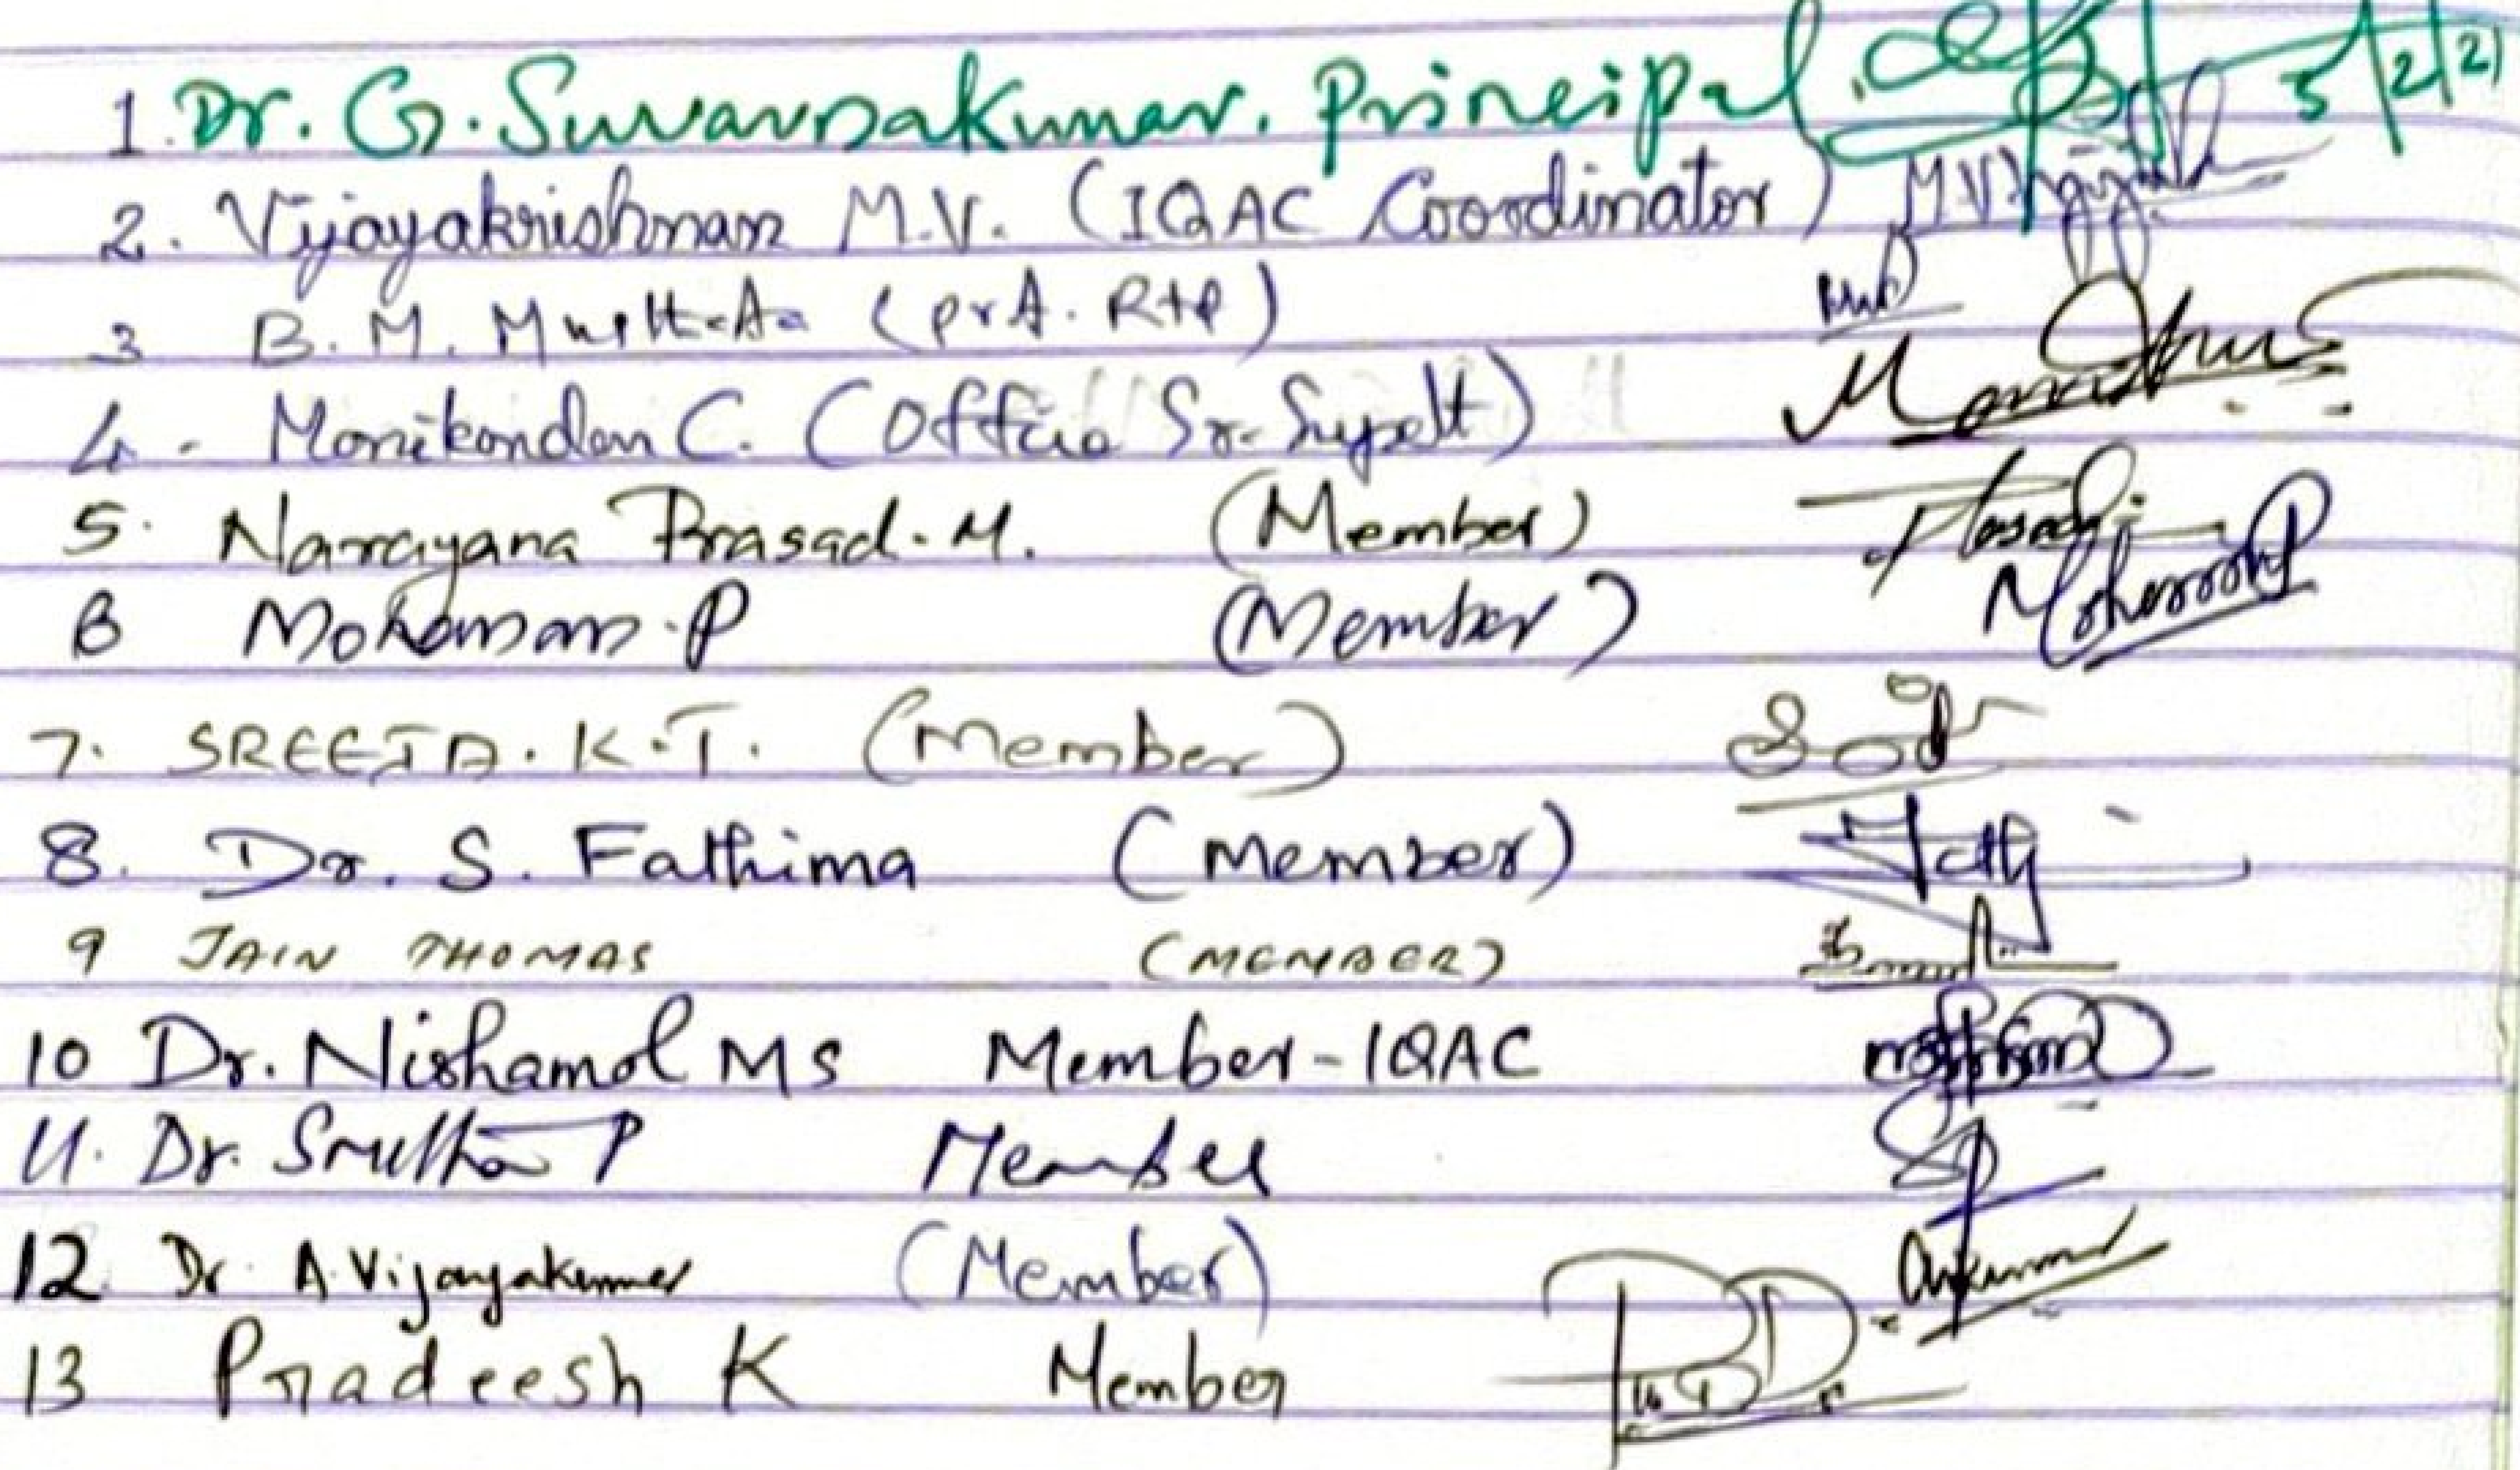 1. Dr. G. Suvarnakumar. Principal 5/2/21
2. Vijayakrishnan M.V. (IQAC Coordinator) M.V.
3 B. M. Musthafa
4. Manikandan C. (Office Sr. Supdt)
5. Narayana Prasad. M. (Member) Prasad
6 Mohanan. P (Member) Mohanan P
7. SREEJA. K. T. (Member)
8. Dr. S. Fathima (Member)
9 JAIN THOMAS (MEMBER)
10 Dr. Nishamol MS Member-IQAC
11. Dr. Smitha P Member
12 Dr. A. Vijayakumar (Member)
13 Pradeesh K Member